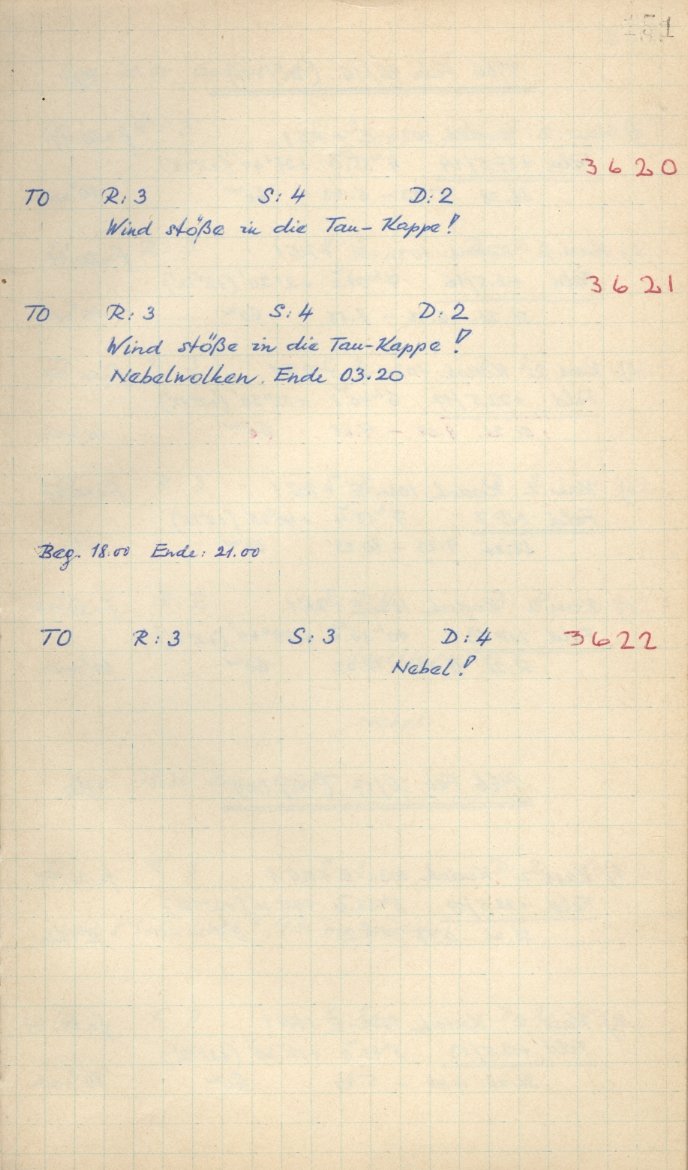 3620
TO R: 3 S: 4 D: 2
Wind stöße in die Tau-Kappe!
3621
TO R: 3 S: 4 D: 2
Wind stöße in die Tau-Kappe!
Nebelwolken. Ende 03.20
Beg. 18.00 Ende: 21.00
TO R: 3 S: 3 D: 4 3622
Nebel!